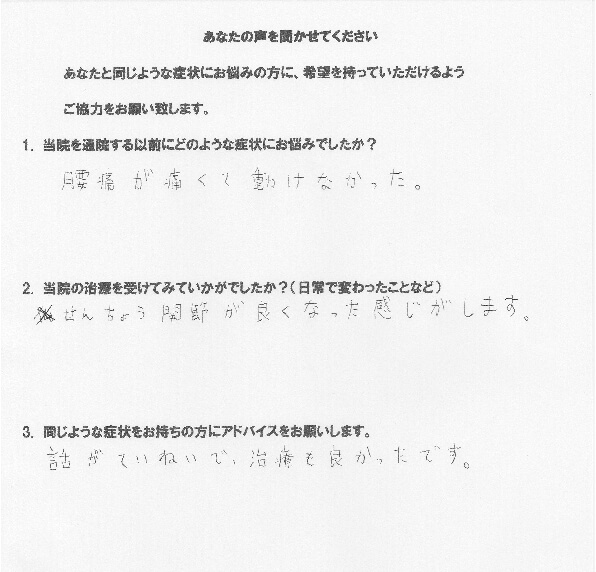 あなたの声を聞かせてください
あなたと同じような症状にお悩みの方に、希望を持っていただけるよう
ご協力をお願い致します。
1. 当院を通院する以前にどのような症状にお悩みでしたか？
腰痛が痛くて動けなかった。
2. 当院の治療を受けてみていかがでしたか？（日常で変わったことなど）
せんちょう関節が良くなった感じがします。
3. 同じような症状をお持ちの方にアドバイスをお願いします。
話がていねいで、治療も良かったです。